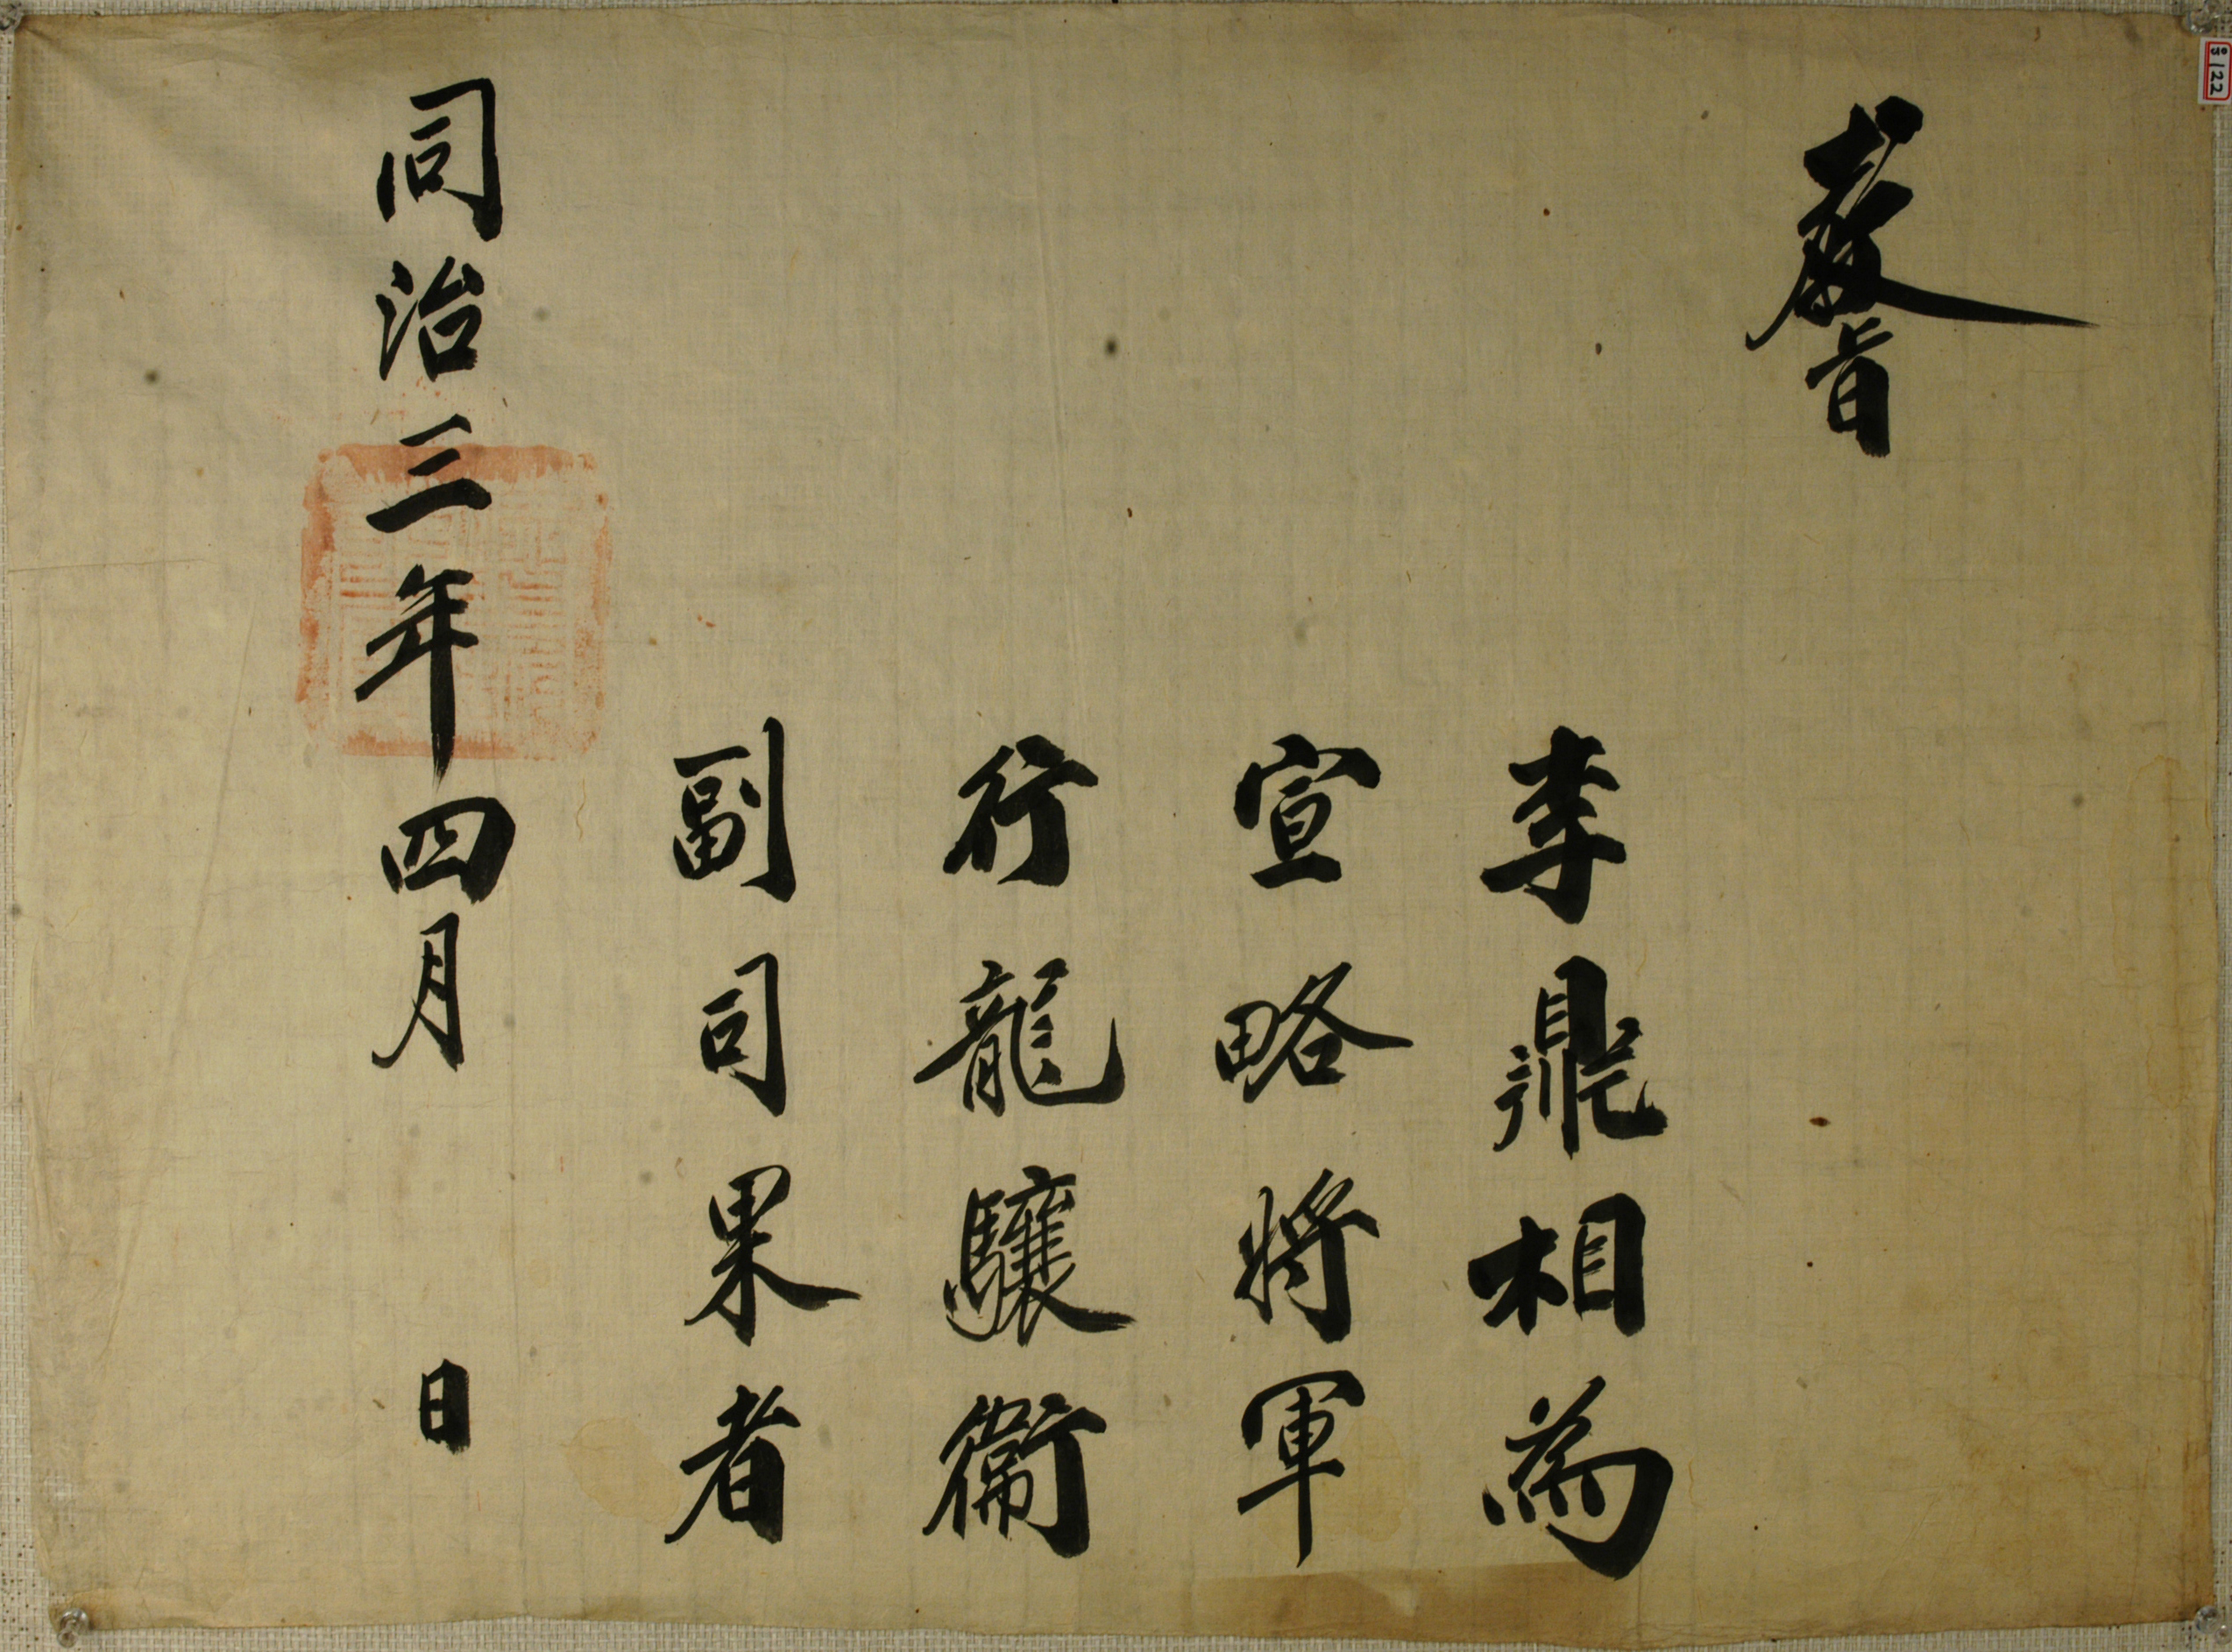 敎旨
李鼎相為
宣略將軍
行龍驤衛
副司果者
同治三年四月 日
122